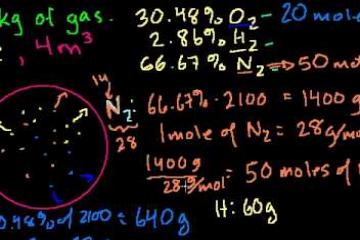 kg of gas.
, 4m³
30.48% O₂ - 20 mole
2.86% H₂ -
66.67% N₂ → 50 mol
14
N₂:
28
66.67% · 2100 = 1400 g
1 mole of N₂ = 28 g/mo
1400 g
28 g/mol = 50 moles of
H: 60g
0.48% of 2100 = 640g